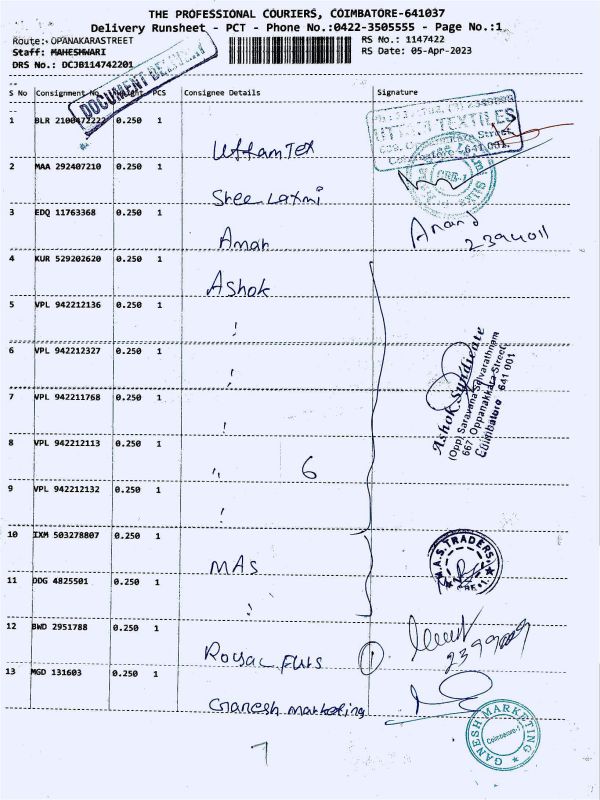 THE PROFESSIONAL COURIERS, COIMBATORE-641037
Delivery Runsheet - PCT - Phone No.:0422-3505555 - Page No.:1
Route: OPANAKARASTREET RS No.: 1147422
Staff: MAHESHWARI RS Date: 05-Apr-2023
DRS No.: DCJB114742201
DOCUMENT DELIVERY
S No Consignment No. Weight PCS Consignee Details Signature
1 BLR 2100472222 0.250 1 UttamTex
UTTAM TEXTILES
Street,
641 001.
2 MAA 292407210 0.250 1 Shree Laxmi
CBE-1
3 EDQ 11763368 0.250 1 Aman Anand
4 KUR 529202620 0.250 1 Ashok
5 VPL 942212136 0.250 1
6 VPL 942212327 0.250 1
7 VPL 942211768 0.250 1
8 VPL 942212113 0.250 1 " 6
9 VPL 942212132 0.250 1
Ashok Syndicate
(Opp) Saravana Selvarathnam
667, Oppanakkara Street,
Coimbatore 641 001
10 IXM 503278807 0.250 1 MAS
M.A.S. TRADERS
CBE-1.
11 DDG 4825501 0.250 1
12 BWD 2951788 0.250 1 Royal Furs 1
13 MGD 131603 0.250 1 Ganesh marketing
GANESH MARKETING
Coimbatore-1
7